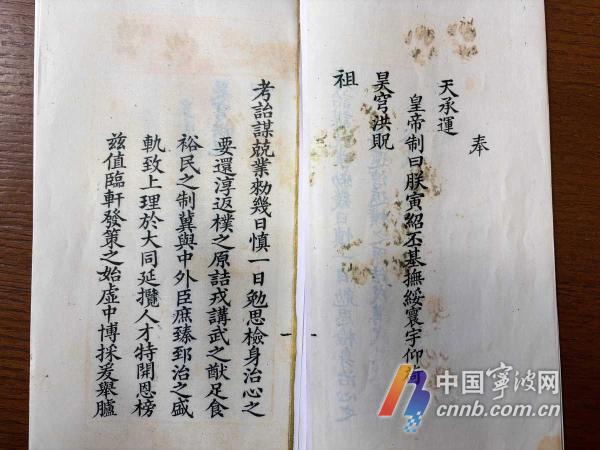 奉
天承運
皇帝制曰朕寅紹丕基撫綏寰宇仰荷
昊穹洪貺
祖
考詒謀兢業勑幾日慎一日勉思檢身治心之
要還淳返樸之原詰戎講武之猷足食
裕民之制冀與中外臣庶臻郅治之盛
軌致上理於大同延攬人才特開恩榜
茲值臨軒發策之始虛中博採爰舉臚
中国宁波网
cnnb.com.cn